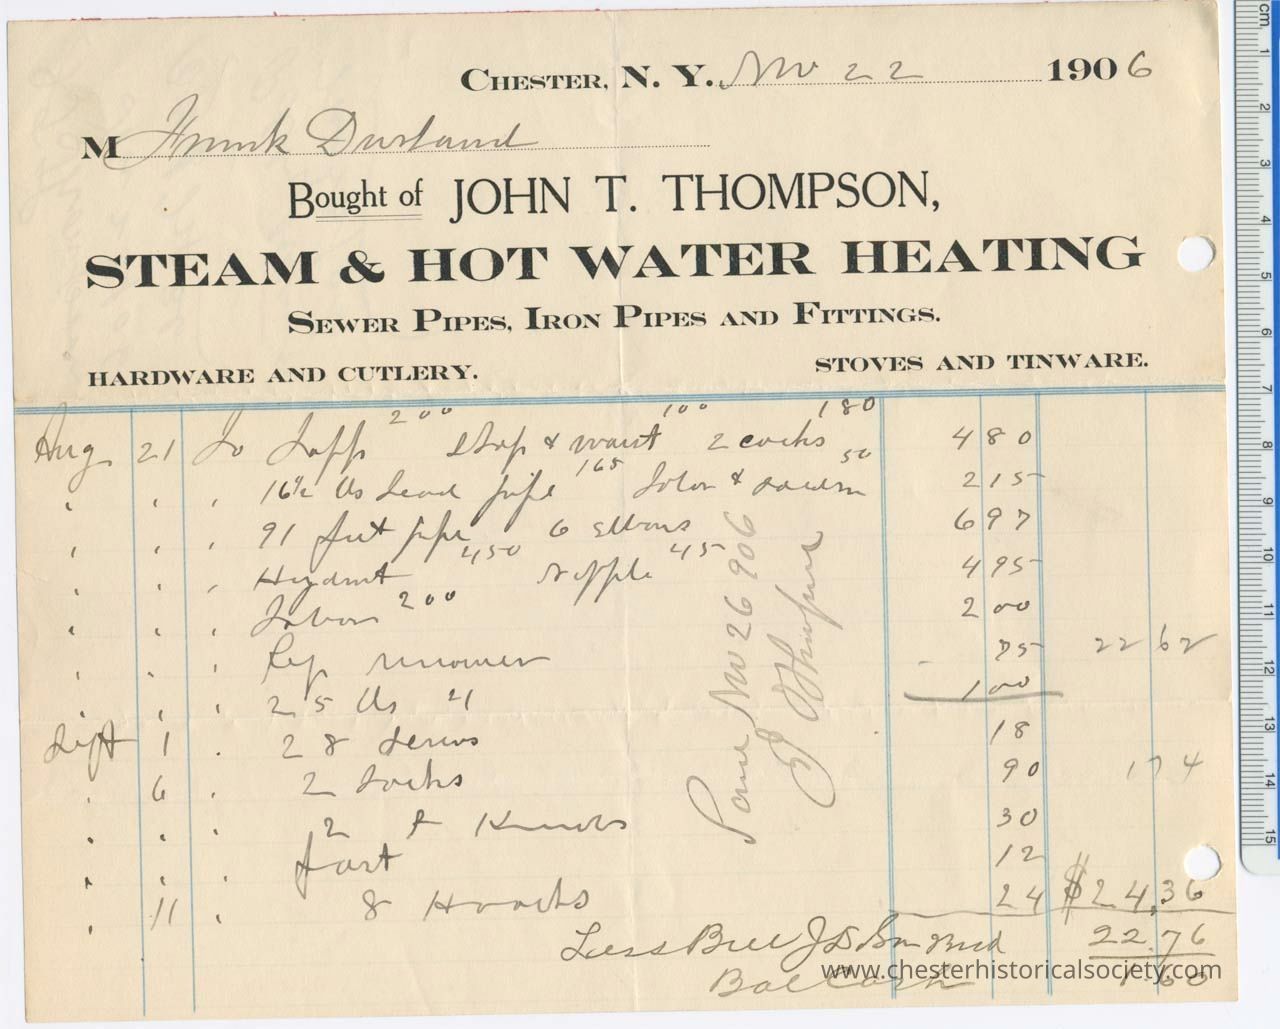 CHESTER, N. Y. Nov 22 1906
M Frank Durland
Bought of JOHN T. THOMPSON,
STEAM & HOT WATER HEATING
SEWER PIPES, IRON PIPES AND FITTINGS.
HARDWARE AND CUTLERY. STOVES AND TINWARE.
Aug 21 To 2 00 Stop & wast 1 00 2 cocks 1 80 4 80
" " " 16½ lbs Lead pipe 1 65 50 2 15
" " " 91 feet pipe 6 elbows 6 97
" " " Hydrant 4 50 Nipple 45 4 95
" " " Labor 2 00 2 00
" " " 75 22 62
" " " 25 lbs " 1 00
Sept 1 " 28 18
" 6 " 2 Locks 90 1 74
" " " 2 Knobs 30
" " " 12
" 11 " 8 Hooks 24 $24.36
Less Bill 22.76
Bal Cash 1.60
Nov 26 906
J Thompson
www.chesterhistoricalsociety.com
cm 1 2 3 4 5 6 7 8 9 10 11 12 13 14 15